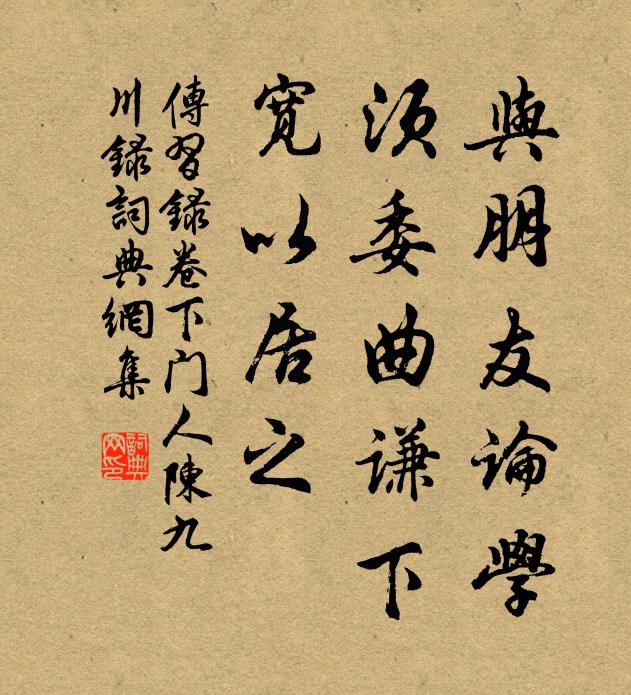 與朋友論學
須委曲謙下
寬以居之
傳習録卷下门人陳九
川録詞典網集
詞典网印